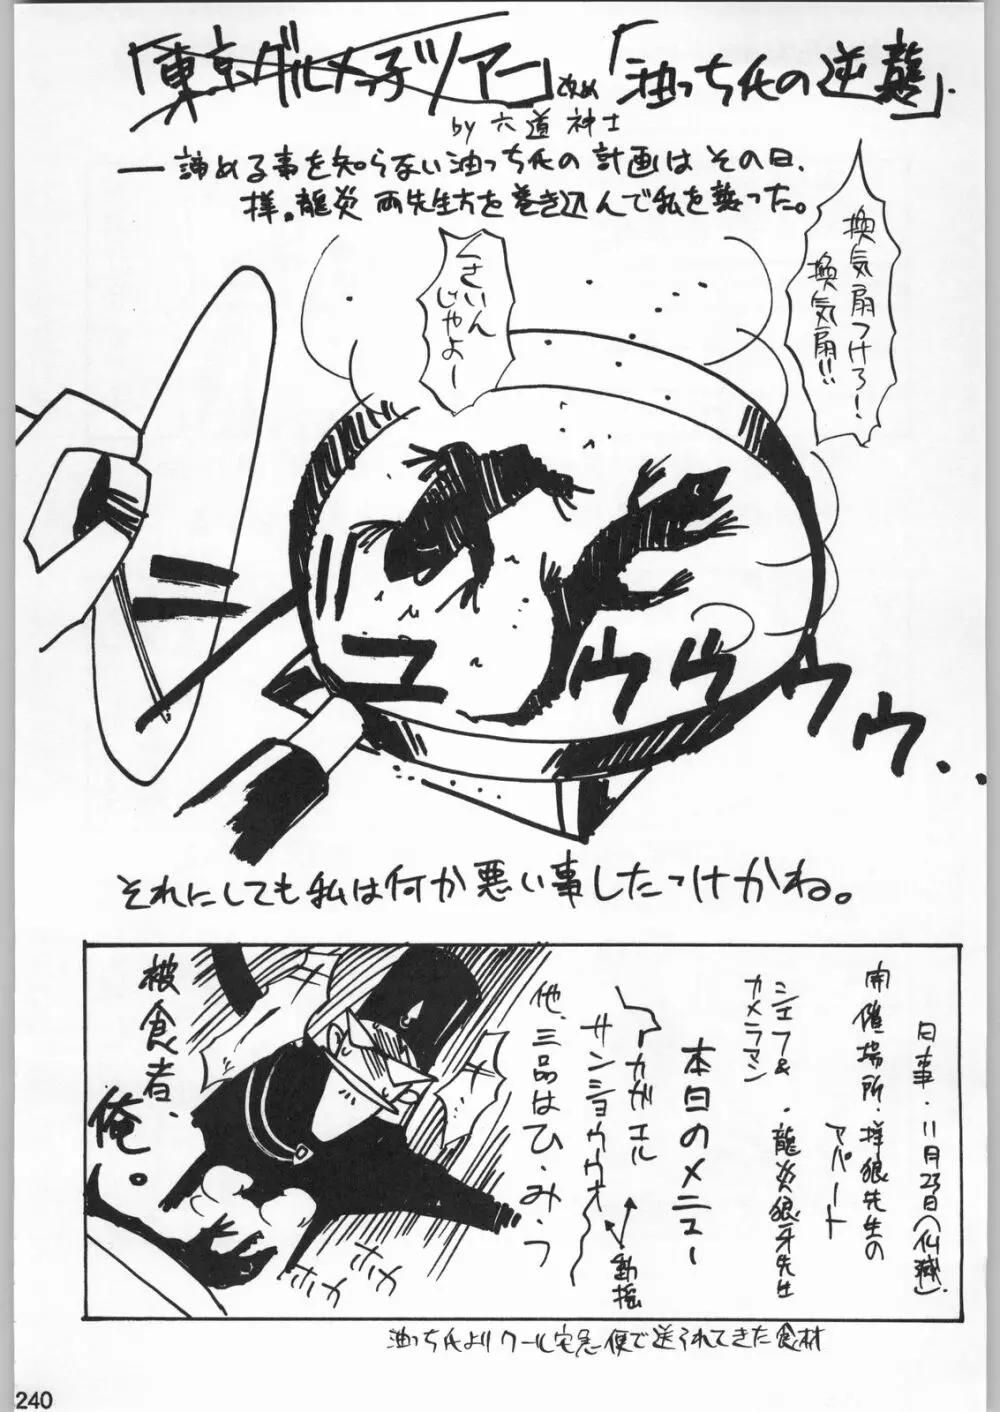 「東京グルメ子ツアー」改め「油っち氏の逆襲」.
by 六道神士
― 諦める事を知らない油っち氏の計画はその日、
拝。龍炎 両先生方を巻き込んで私を襲った。
換気扇つけろー!
換気扇!!
くさいん
じゃよー
ジュウウウウウ..
それにしても私は何か悪い事したっけかね。
日事・11月23日(仏滅).
開催場所・拝狼先生の
アパート
シェフ&
カメラマン
・龍炎狼牙先生
本日のメニュー
アカガエル
サンショウウオ
動揺
他、三品はひ・み・つ
被食者、
俺。
ホカ
ホカ
油っち氏よりクール宅急便で送られてきた食材
240